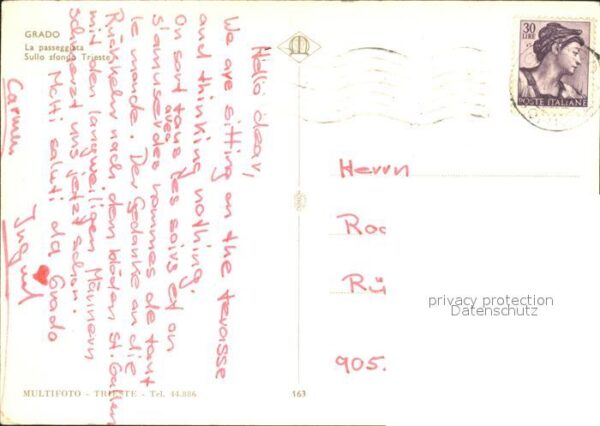 GRADO
La passeggiata
Sullo sfondo Trieste
Hello dear,
We are sitting on the terasse
and thinking nothing.
On sort tous les soirs et on
s'amuse avec des hommes de tout
le monde. Der Gedanke an die
Rückkehr nach dem blöden St. Gallen
mit den langweiligen Männern
schmerzt uns jetzt schon.
Molti saluti da Grado
Carmen
Ingrid
30
LIRE
POSTE ITALIANE
Herrn
Roc
Rü
905.
privacy protection
Datenschutz
MULTIFOTO - TRIESTE - Tel. 44.886
163